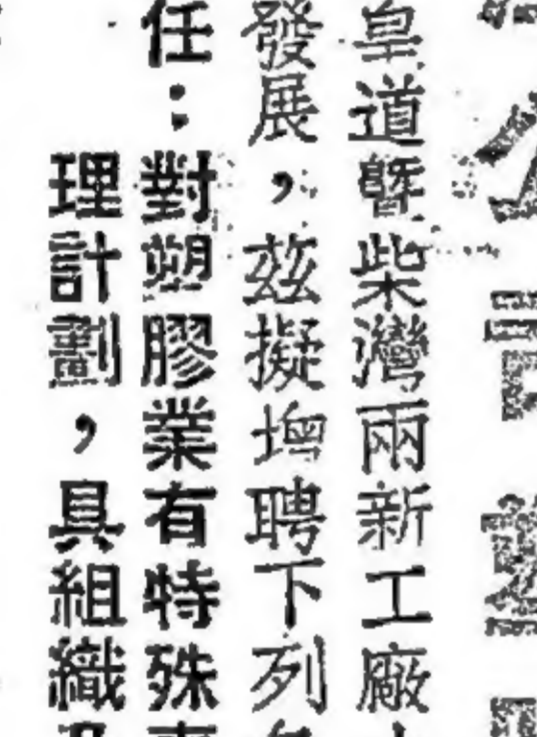 皇道暨柴灣兩新工廠
發展，茲擬增聘下列
任：對塑膠業有特殊
理計劃，具組織